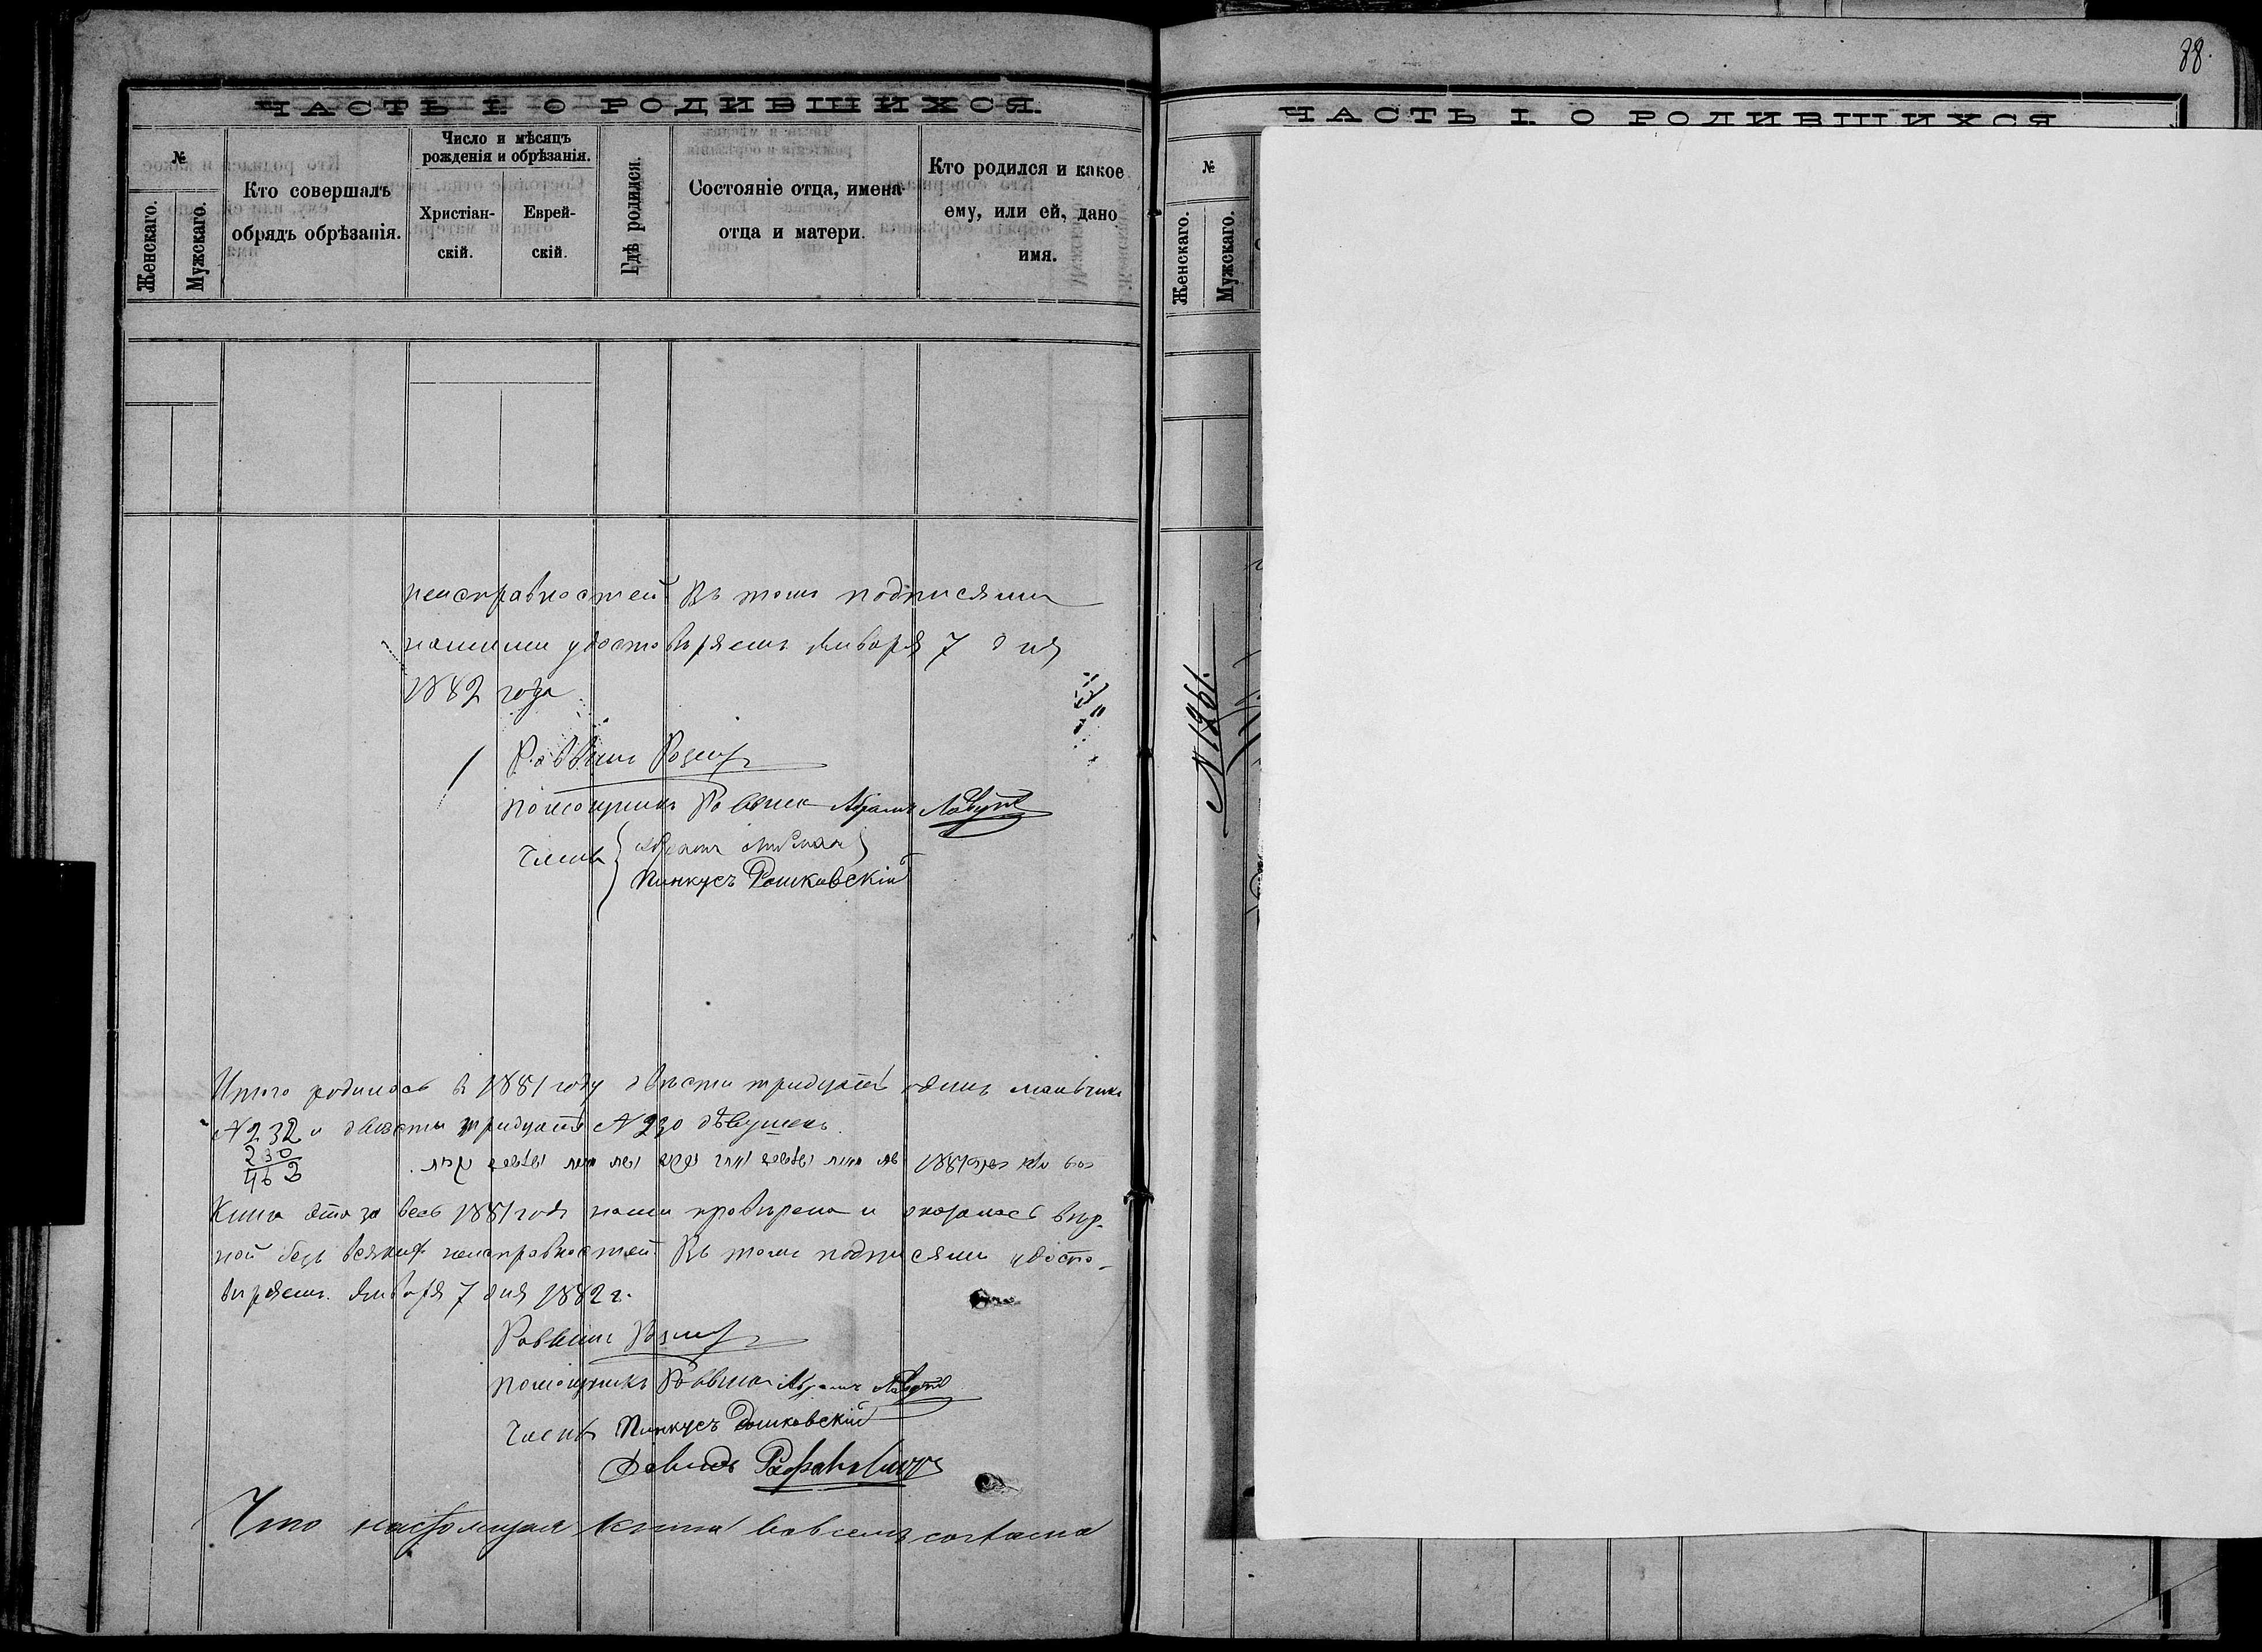 88.
ЧАСТЬ I. О РОДИВШИХСЯ.
№
Женскаго.
Мужскаго.
Кто совершалъ
обрядъ обрѣзанія.
Число и мѣсяцъ
рожденія и обрѣзанія.
Христіан-
скій.
Еврей-
скій.
Гдѣ родился.
Состояніе отца, имена
отца и матери.
Кто родился и какое
ему, или ей, дано
имя.
неисправностей Въ томъ подписями
нашими удостовѣряемъ Января 7 дня
1882 года
Раввинъ
Помощникъ Раввина Абрамъ
Члены
Пинкусъ Рашковскій
Итого родилось в 1881 году двѣсти тридцать одинъ мальчикъ
N 232 и двѣсти тридцать N 230 дѣвушекъ
230
462
1881
Книга эта за весь 1881 годъ нами провѣрена и оказалась вѣр-
ной безъ всякихъ неисправностей Въ томъ подписями удосто-
вѣряемъ. Января 7 дня 1882 г.
Раввинъ
Помощникъ Раввина Абрамъ
Члены Пинкусъ Рашковскій
Давидъ
Что настоящая книга вовсемъ согласна
ЧАСТЬ I. О РОДИВШИХСЯ
№
Женскаго.
Мужскаго.
N 1261.